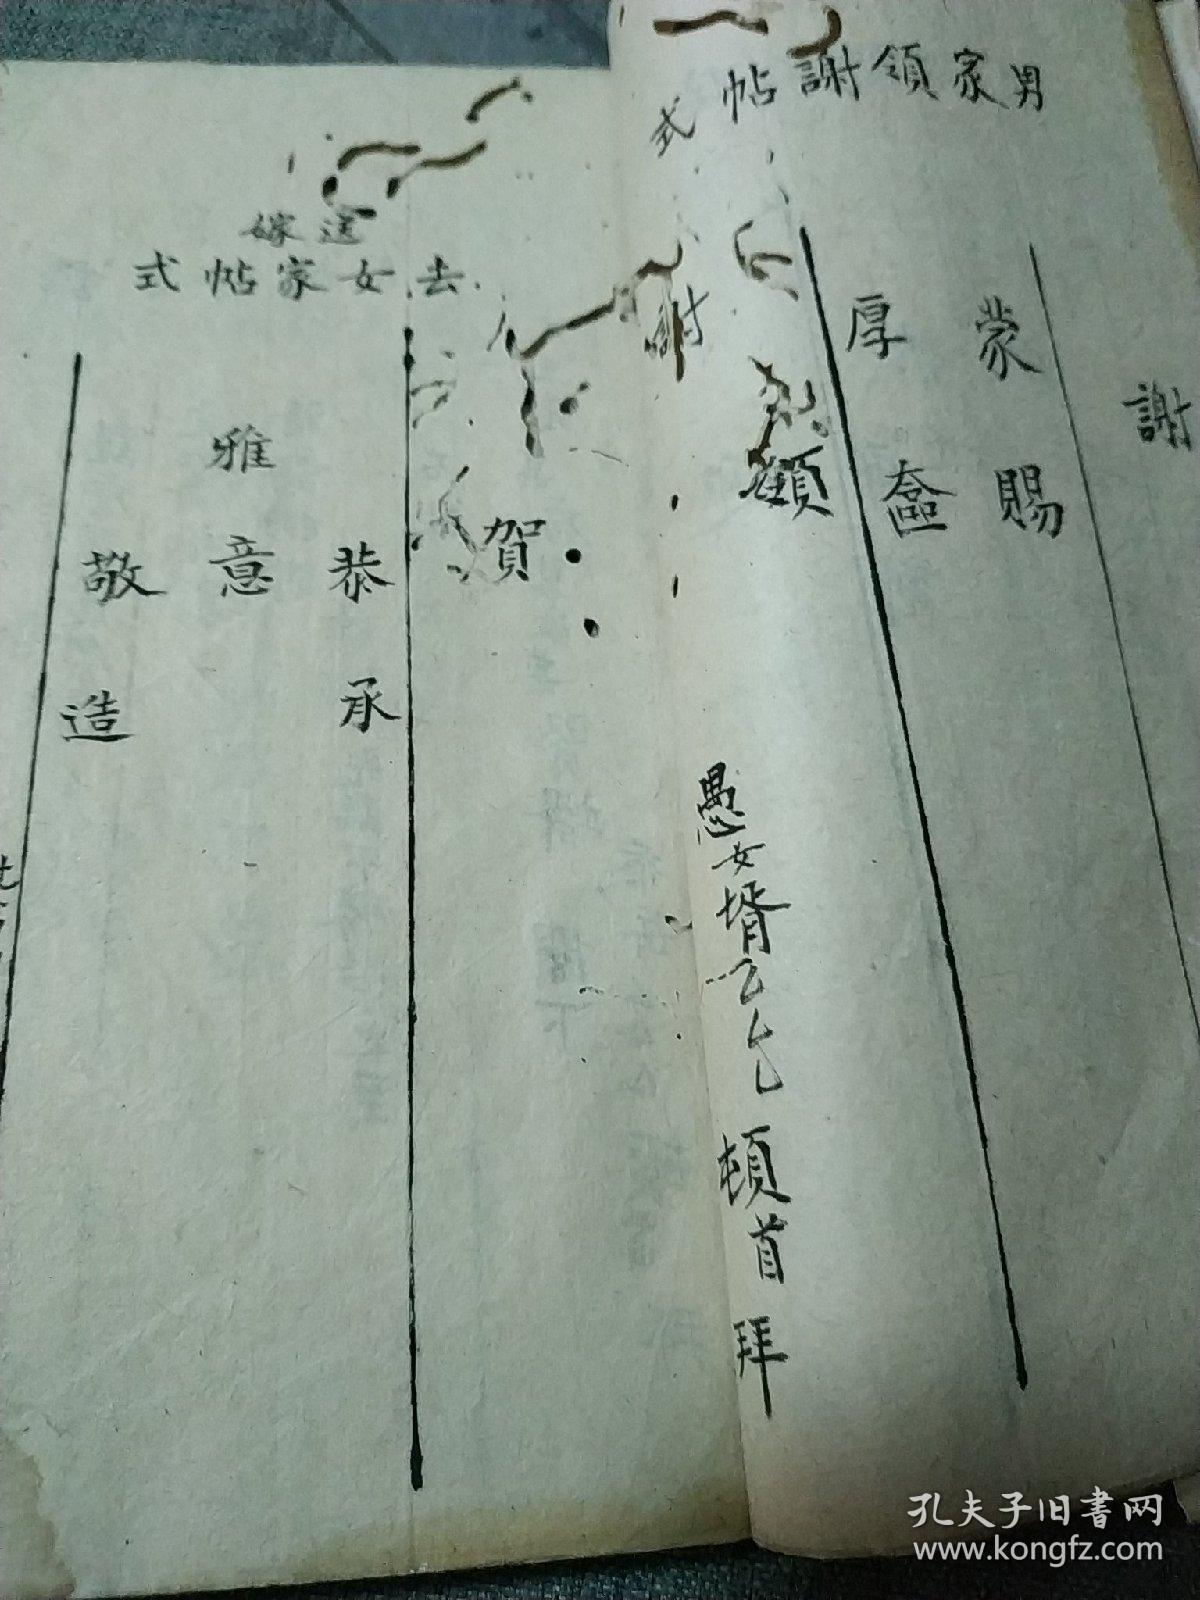 男家領謝帖式
謝
蒙賜
厚奩
謝
愚女壻厶厶頓首拜
賀
送嫁
去女家帖式
恭承
雅意
敬造
孔夫子旧書网
www.kongfz.com